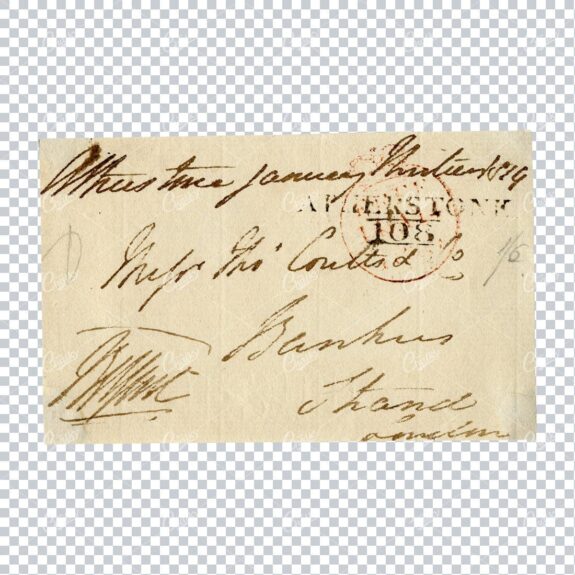 Atherstone January Thirteen 1819
ATHERSTONE
108
Messrs Thos Coutts & Co
1/6
Bankers
Strand
London